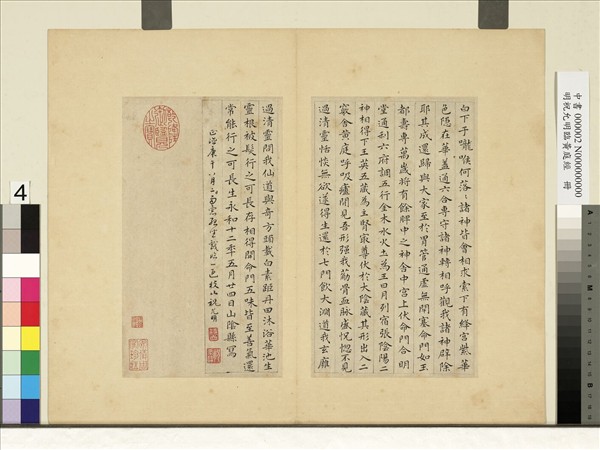 向下于喉嚨何落落諸神皆會相求索下有絳宮紫華
色隱在華蓋通六合專守諸神轉相呼觀我諸神辟除
耶其成還歸與大家至於胃管通虛無閉塞命門如王
都壽專萬歲將有餘脾中之神舍中宮上伏命門合明
堂通利六府調五行金木水火土為王日月列宿張陰陽二
神相得下王英五藏為主腎最尊伏於大陰藏其形出入二
竅舍黃庭呼吸廬間見吾形强我筋骨血脉盛恍惚不見
過清靈恬惔無欲遂得生還於七門飲大淵道我玄廱
過清靈問我仙道與奇方頭載白素距丹田沐浴華池生
靈根被髮行之可長存相得開命門五味皆至善氣還
常能行之可長生永和十二年五月廿四日山陰縣寫
正德庚午八月
中書 000002 N000000000
明祝允明臨黃庭經 冊
4